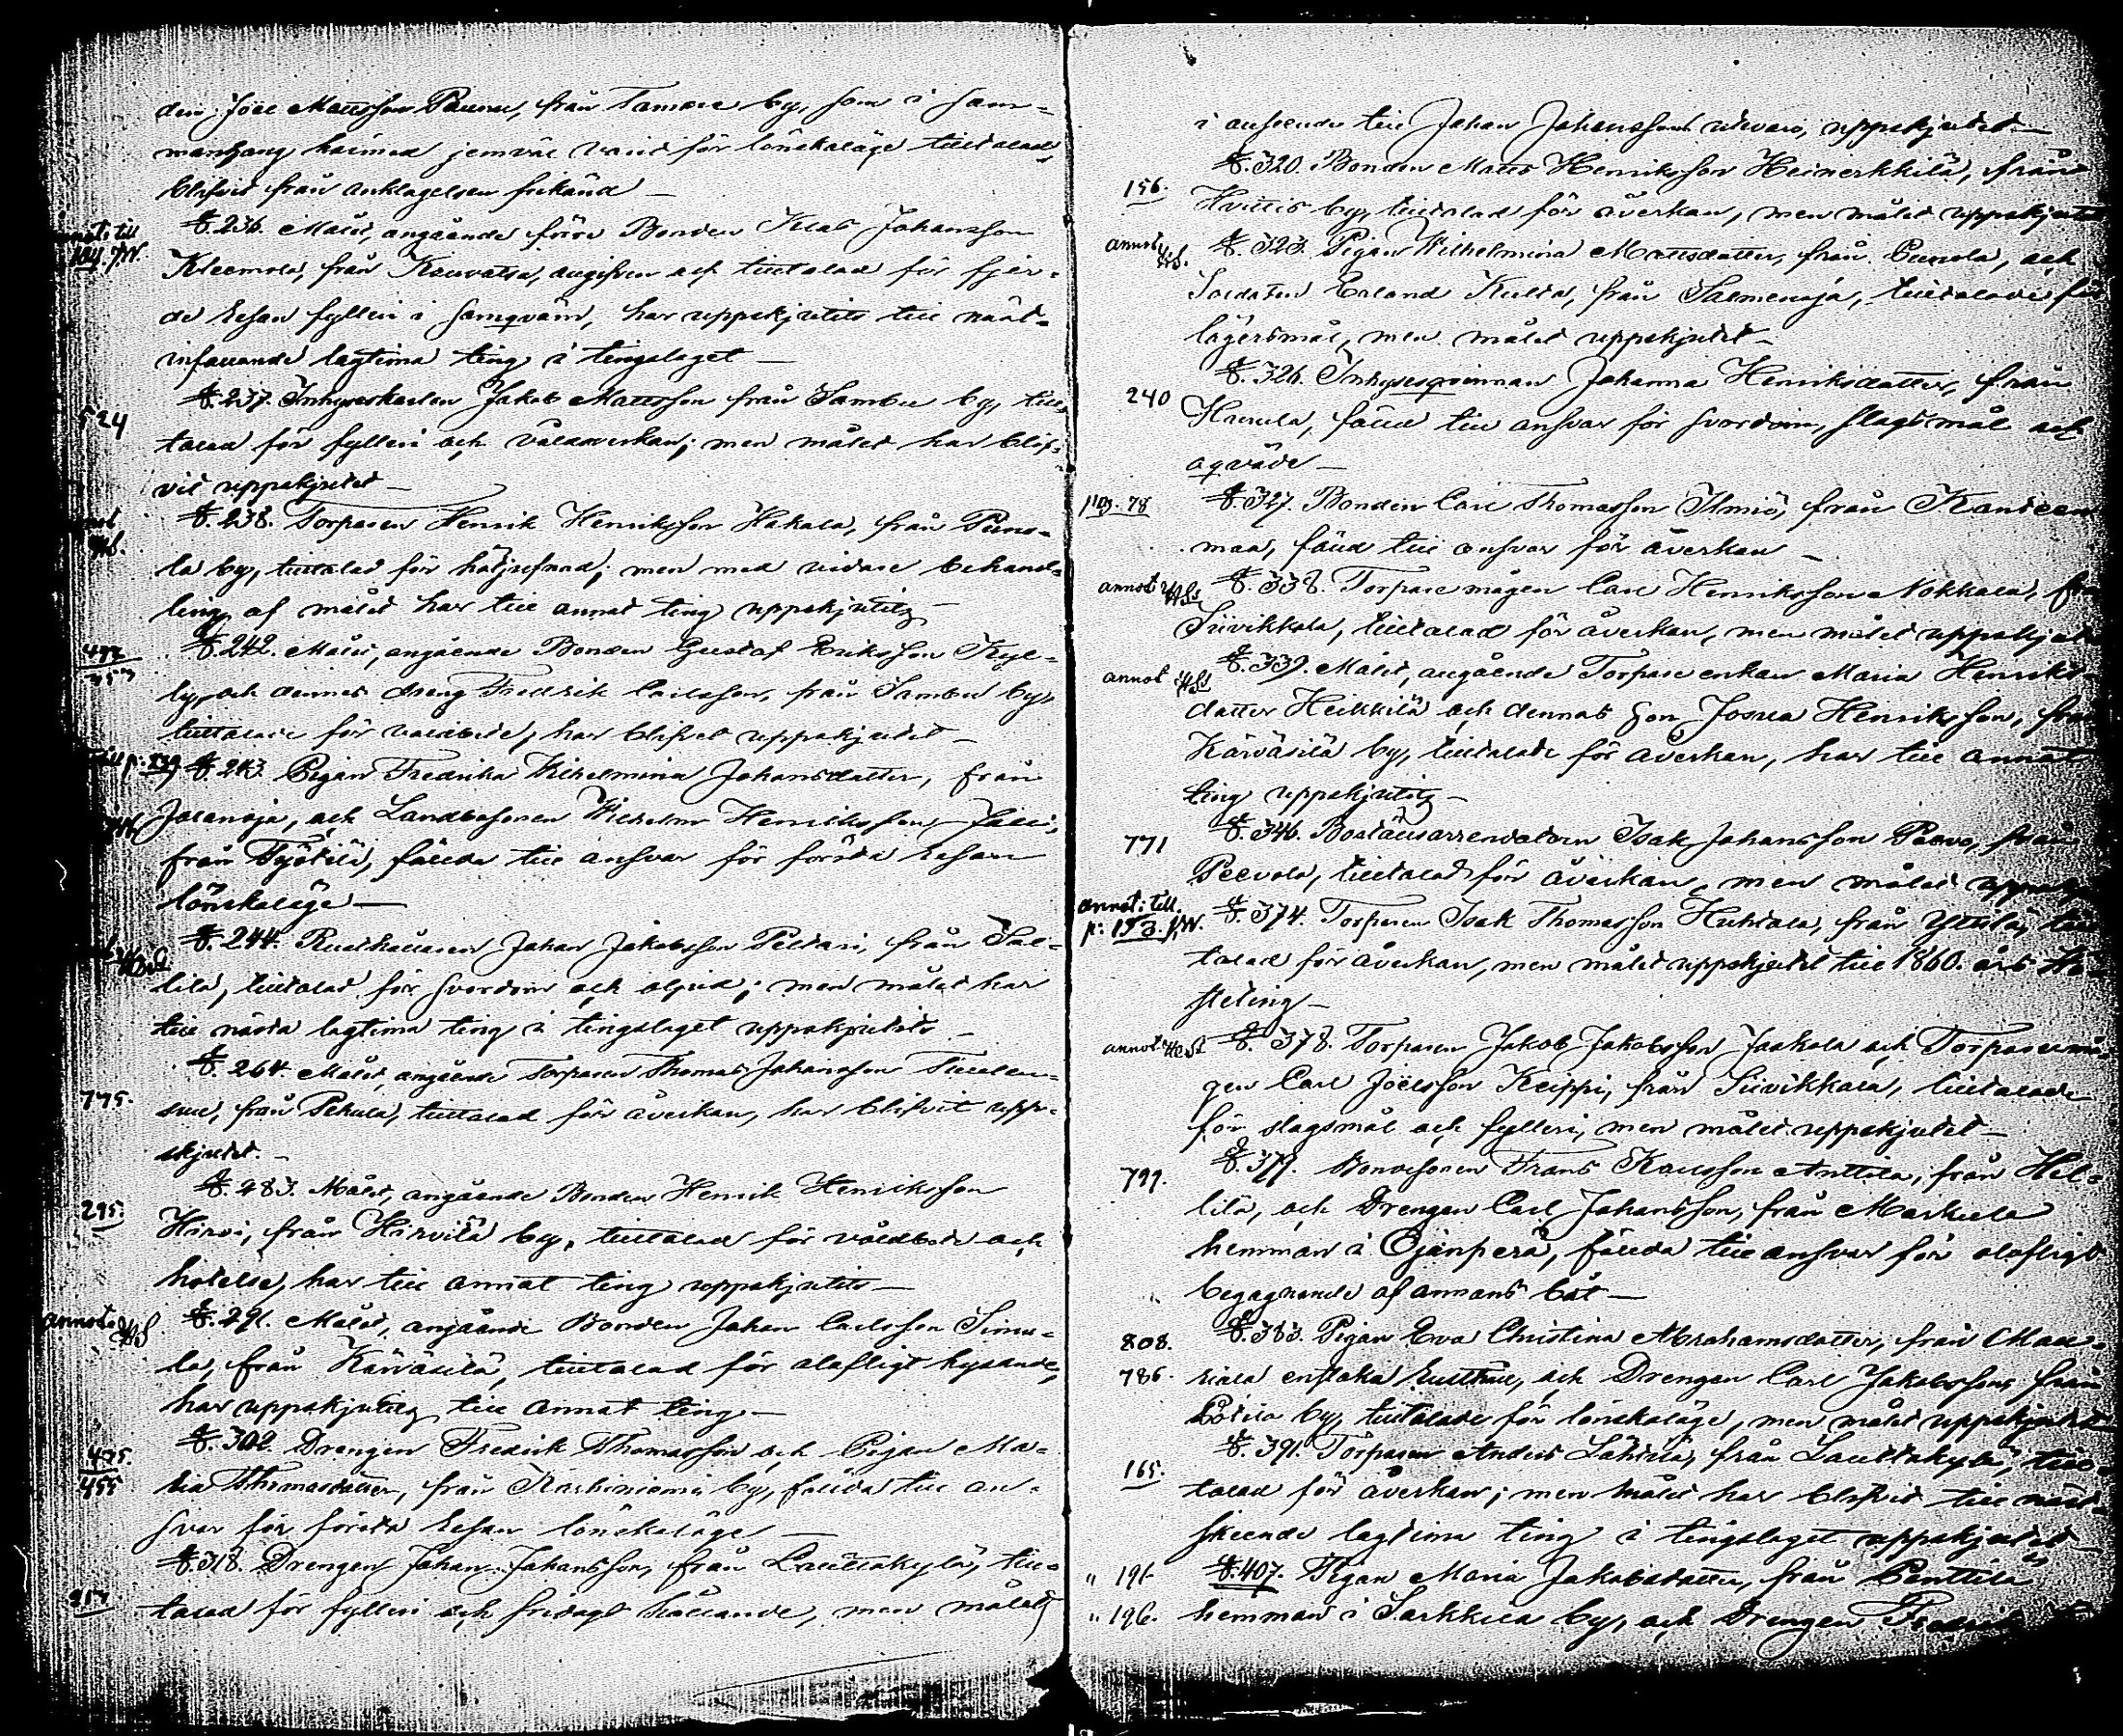 den Joel Mattsson Paunu, från Tamare by, som i sam-
manhang härmed jemväl varit för lönskaläge tilltalad,
blifvit från anklagelsen frikänd —
annot: till
pag. JW.
§. 236. Målet, angående förre Bonden Klas Johansson
Kleemola, från Kauvatsa, angifven och tilltalad för fjer-
de resan fylleri i samqväm, har uppskjutits till näst-
infallande lagtima ting i tingslaget —
524
§. 237. Inhyseskarlen Jakob Mattsson från Sambu by, till-
talad för fylleri och våldsverkan; men målet har blif-
vit uppskjutet —
annot
§. 238. Torparen Henrik Henriksson Hakala, från Puno-
la by, tilltalad för häljufnad; men med vidare behand-
ling af målet har till annat ting uppskjutits —
492
457
§. 242. Målet, angående Bonden Gustaf Eriksson Kyl-
ly, och dennes dreng Fredrik Carlsson, från Sambu by,
tilltalade för våldsbete, har blifvet uppskjutet —
till p: 239
§. 243. Pigan Fredrika Wilhelmina Johansdotter, från
Jalanoja, och Landbosonen Wilhelm Henriksson Jalli,
från Työtilä, fällda till ansvar för första resan
lönskaläge —
§. 244. Rusthållaren Johan Jakobsson Peldari, från Sal-
lila, tilltalad för svordom och oljud; men målet har
till nästa lagtima ting i tingslaget uppskjutits —
775.
§. 264. Målet, angående Torparen Thomas Johansson
från Pehula, tilltalad för åverkan, har blifvit upp-
skjutet. —
295.
§. 283. Målet, angående Bonden Henrik Henriksson
Hirvi, från Hirvilä by, tilltalad för våldsbete och
hotelse, har till annat ting uppskjutits —
annot:
§. 291. Målet, angående Bonden Johan Carlsson Simu-
la, från Kärväsilä, tilltalad för olofligt hysande,
har uppskjutits till annat ting —
475.
455
§. 302. Drengen Fredrik Thomasson och Pigan Ma-
ria Thomasdotter, från Karhiniemi by, fällda till an-
svar för första resan lönskaläge —
257.
§. 318. Drengen Johan Johansson, från Lauttakylä, till-
talad för fylleri och fridagt hållande, men målet
i anseende till Johan Johanssons utevaro, uppskjutet —
156.
§. 320. Bonden Matts Henriksson Heinerkkilä, från
Hvittis by, tilltalad för åverkan, men målet uppskjutet
annot
§. 323. Pigan Wilhelmina Mattsdotter, från Punola, och
Soldaten Erland Kulta, från Salmenoja, tilltalade för
lägersmål, men målet uppskjutet —
240
§. 326. Inhysesqvinnan Johanna Henriksdotter, från
Hannula, fälld till ansvar för svordom, slagsmål och
oqväde —
pag. 78
§. 327. Bonden Carl Thomasson Ilmiö, från Kanteen
maa, fälld till ansvar för åverkan —
annot
§. 338. Torpare mågen Carl Henriksson Nokkala, från
Suvikkala, tilltalad för åverkan, men målet uppskjutet
annot
§. 339. Målet, angående Torpare enkan Maria Henriks-
dotter Heikkilä och dennas son Josua Henriksson, från
Kärväsilä by, tilltalade för åverkan, har till annat
ting uppskjutits —
771
§. 346. Boställsarrendatorn Isak Johansson Peevo, från
Peevola, tilltalad för åverkan, men målet
annot: till
p: 153. JW.
§. 374. Torparen Isak Thomasson Huhtala, från Yttilä, till-
talad för åverkan, men målet uppskjutet till 1860. års Hö-
steting —
annot
§. 378. Torparen Jakob Jakobsson Jaakola och Torparemå-
gen Carl Joelsson Keippi, från Suvikkala, tilltalade
för slagsmål och fylleri, men målet uppskjutet —
799.
§. 379. Bondesonen Frans Karlsson Anttila, från Hel-
lilä, och Drengen Carl Johansson, från Markula
hemman i Ojanperä, fällda till ansvar för olofligt
begagnande af annans båt —
808.
§. 383. Pigan Eva Christina Abrahamsdotter, från Mau-
786.
riala enstaka rusthåll, och Drengen Carl Jakobsson, från
by, tilltalade för lönskaläge, men målet uppskjutet
165.
§. 391. Torparen Anders Lähtilä, från Lauttakylä, till-
talad för åverkan; men målet har blifvit till näst-
skeende lagtima ting i tingslaget uppskjutet —
" 191.
§. 407. Pigan Maria Jakobsdotter, från Penttilä
" 196.
hemman i Sarkkila by, och Drengen Fredrik